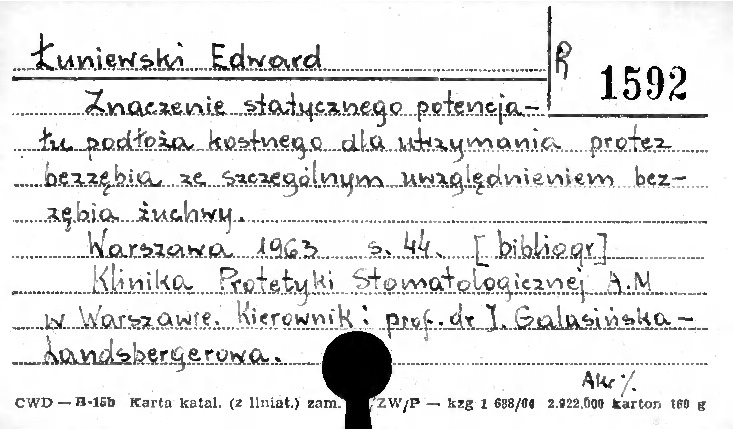 Łuniewski Edward
R 1592
Znaczenie statycznego potencja-
łu podłoża kostnego dla utrzymania protez
bezzębia ze szczególnym uwzględnieniem bez-
zębia żuchwy.
Warszawa 1963 s. 44. [bibliogr]
Klinika Protetyki Stomatologicznej A.M
w Warszawie. Kierownik: prof. dr J. Galasińska-
Landsbergerowa.
CWD — B-15b Karta katal. (z liniat.) zam. ZW/P — kzg 1 688/64 2.922.000 karton 160 g